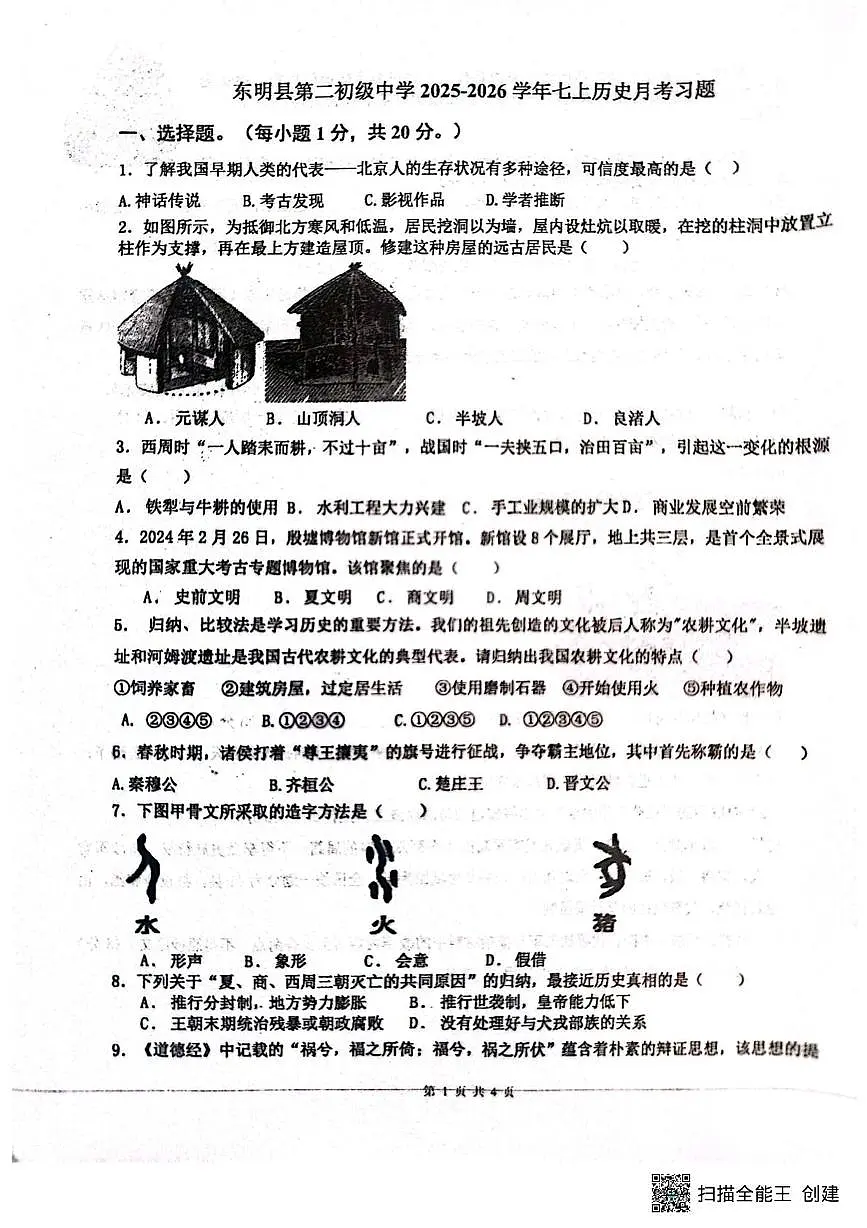 东明县第二初级中学 2025-2026 学年七上历史月考习题
一、选择题。（每小题 1 分，共 20 分。）
1．了解我国早期人类的代表——北京人的生存状况有多种途径，可信度最高的是（ ）
A.神话传说 B.考古发现 C.影视作品 D.学者推断
2．如图所示，为抵御北方寒风和低温，居民挖洞以为墙，屋内设灶炕以取暖，在挖的柱洞中放置立
柱作为支撑，再在最上方建造屋顶。修建这种房屋的远古居民是（ ）
A．元谋人 B．山顶洞人 C．半坡人 D．良渚人
3．西周时“一人踏耒而耕，不过十亩”，战国时“一夫挟五口，治田百亩”，引起这一变化的根源
是（ ）
A．铁犁与牛耕的使用 B．水利工程大力兴建 C．手工业规模的扩大 D．商业发展空前繁荣
4．2024 年 2 月 26 日，殷墟博物馆新馆正式开馆。新馆设 8 个展厅，地上共三层，是首个全景式展
现的国家重大考古专题博物馆。该馆聚焦的是（ ）
A．史前文明 B．夏文明 C．商文明 D．周文明
5．归纳、比较法是学习历史的重要方法。我们的祖先创造的文化被后人称为"农耕文化"，半坡遗
址和河姆渡遗址是我国古代农耕文化的典型代表。请归纳出我国农耕文化的特点（ ）
①饲养家畜 ②建筑房屋，过定居生活 ③使用磨制石器 ④开始使用火 ⑤种植农作物
A. ②③④⑤ B.①②③④ C.①②③⑤ D. ①②③④⑤
6．春秋时期，诸侯打着“尊王攘夷”的旗号进行征战，争夺霸主地位，其中首先称霸的是（ ）
A.秦穆公 B.齐桓公 C.楚庄王 D.晋文公
7．下图甲骨文所采取的造字方法是（ ）
水 火 猪
A．形声 B．象形 C．会意 D．假借
8．下列关于“夏、商、西周三朝灭亡的共同原因”的归纳，最接近历史真相的是（ ）
A．推行分封制，地方势力膨胀 B．推行世袭制，皇帝能力低下
C．王朝末期统治残暴或朝政腐败 D．没有处理好与犬戎部族的关系
9．《道德经》中记载的“祸兮，福之所倚；福兮，祸之所伏”蕴含着朴素的辩证思想，该思想的提
第 1 页 共 4 页
扫描全能王 创建